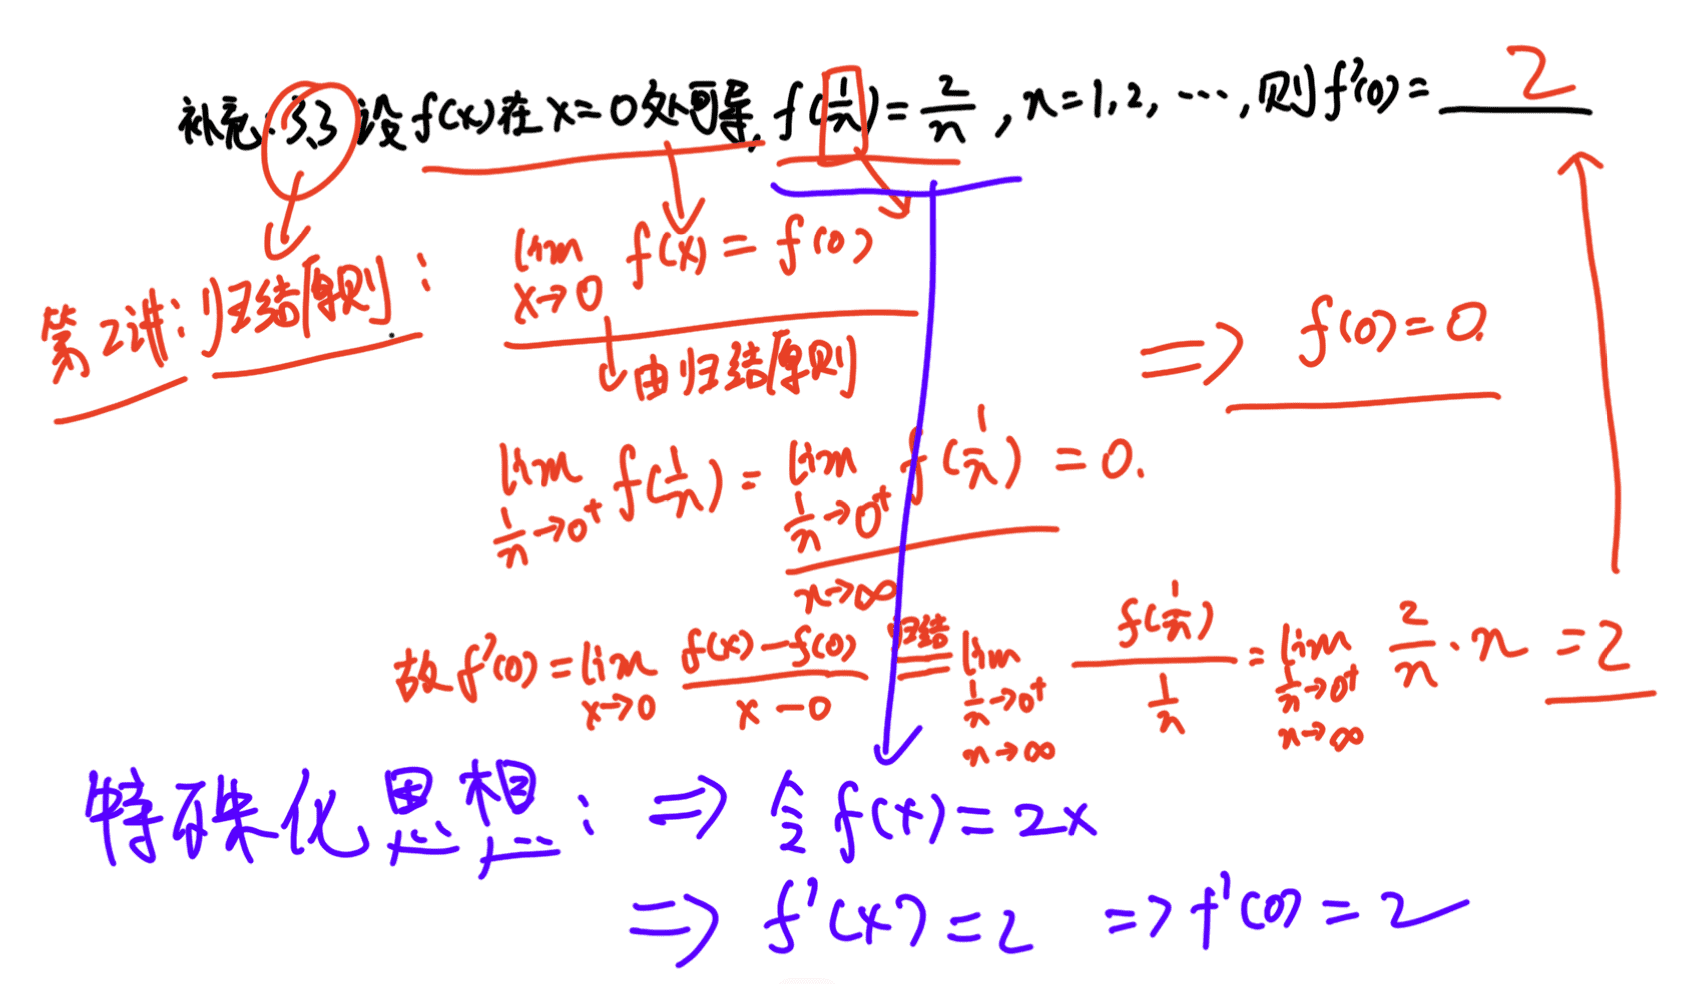 补充:3.3 设f(x)在x=0处可导, f(1/n)=2/n, n=1,2,…,则f'(0)= 2
第2讲:归结原则:
lim x→0 f(x)=f(0)
由归结原则
⇒ f(0)=0.
lim 1/n→0⁺ f(1/n)=lim 1/n→0⁺ f(1/n)=0.
n→∞
故f'(0)=lim x→0 (f(x)-f(0))/(x-0) 归结= lim 1/n→0⁺ n→∞ f(1/n)/(1/n)=lim 1/n→0⁺ n→∞ 2/n·n=2
特殊化思想: ⇒ 令f(x)=2x
⇒ f'(x)=2 ⇒ f'(0)=2